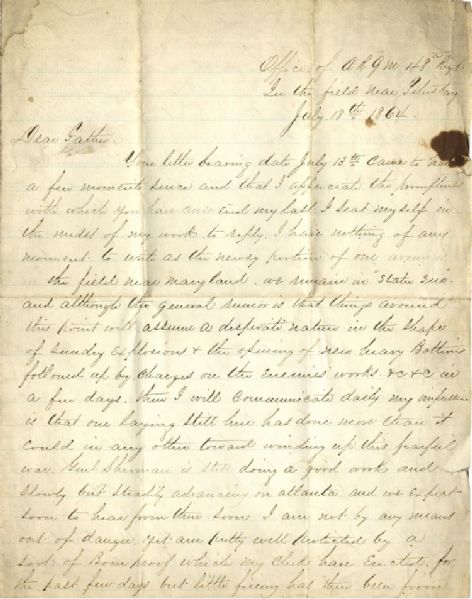 Office of A.R.Q.M. 48th Regt
In the field near Petersburg
July 18th 1864.
Dear Father.
Your letter bearing date July 13th Came to hand
a few moments since and that I appreciate the promptness
with which you have answered my last I seat myself in
the midst of my work to reply. I have nothing of any
moment to write as the newsy portion of our army is
in the field near Maryland. we remain in "Statu Quo"
and although the general rumor is that things around
this point will assume a desperate nature in the shape
of Sundry Explosions & the opening of new heavy Batteries
followed up by Charges on the Enemies works &c &c in
a few days. then I will Communicate daily my
is that our laying still here has done more than it
Could in any other toward winding up this fearful
war. Genl Sherman is still doing a good work and
slowly but steadily advancing on atlanta and we Expect
soon to hear from there soon I am not by any means
out of danger yet am pretty well protected by a
sort of Bomproof which my Clerks have Erected. for
the past few days but little firing has been